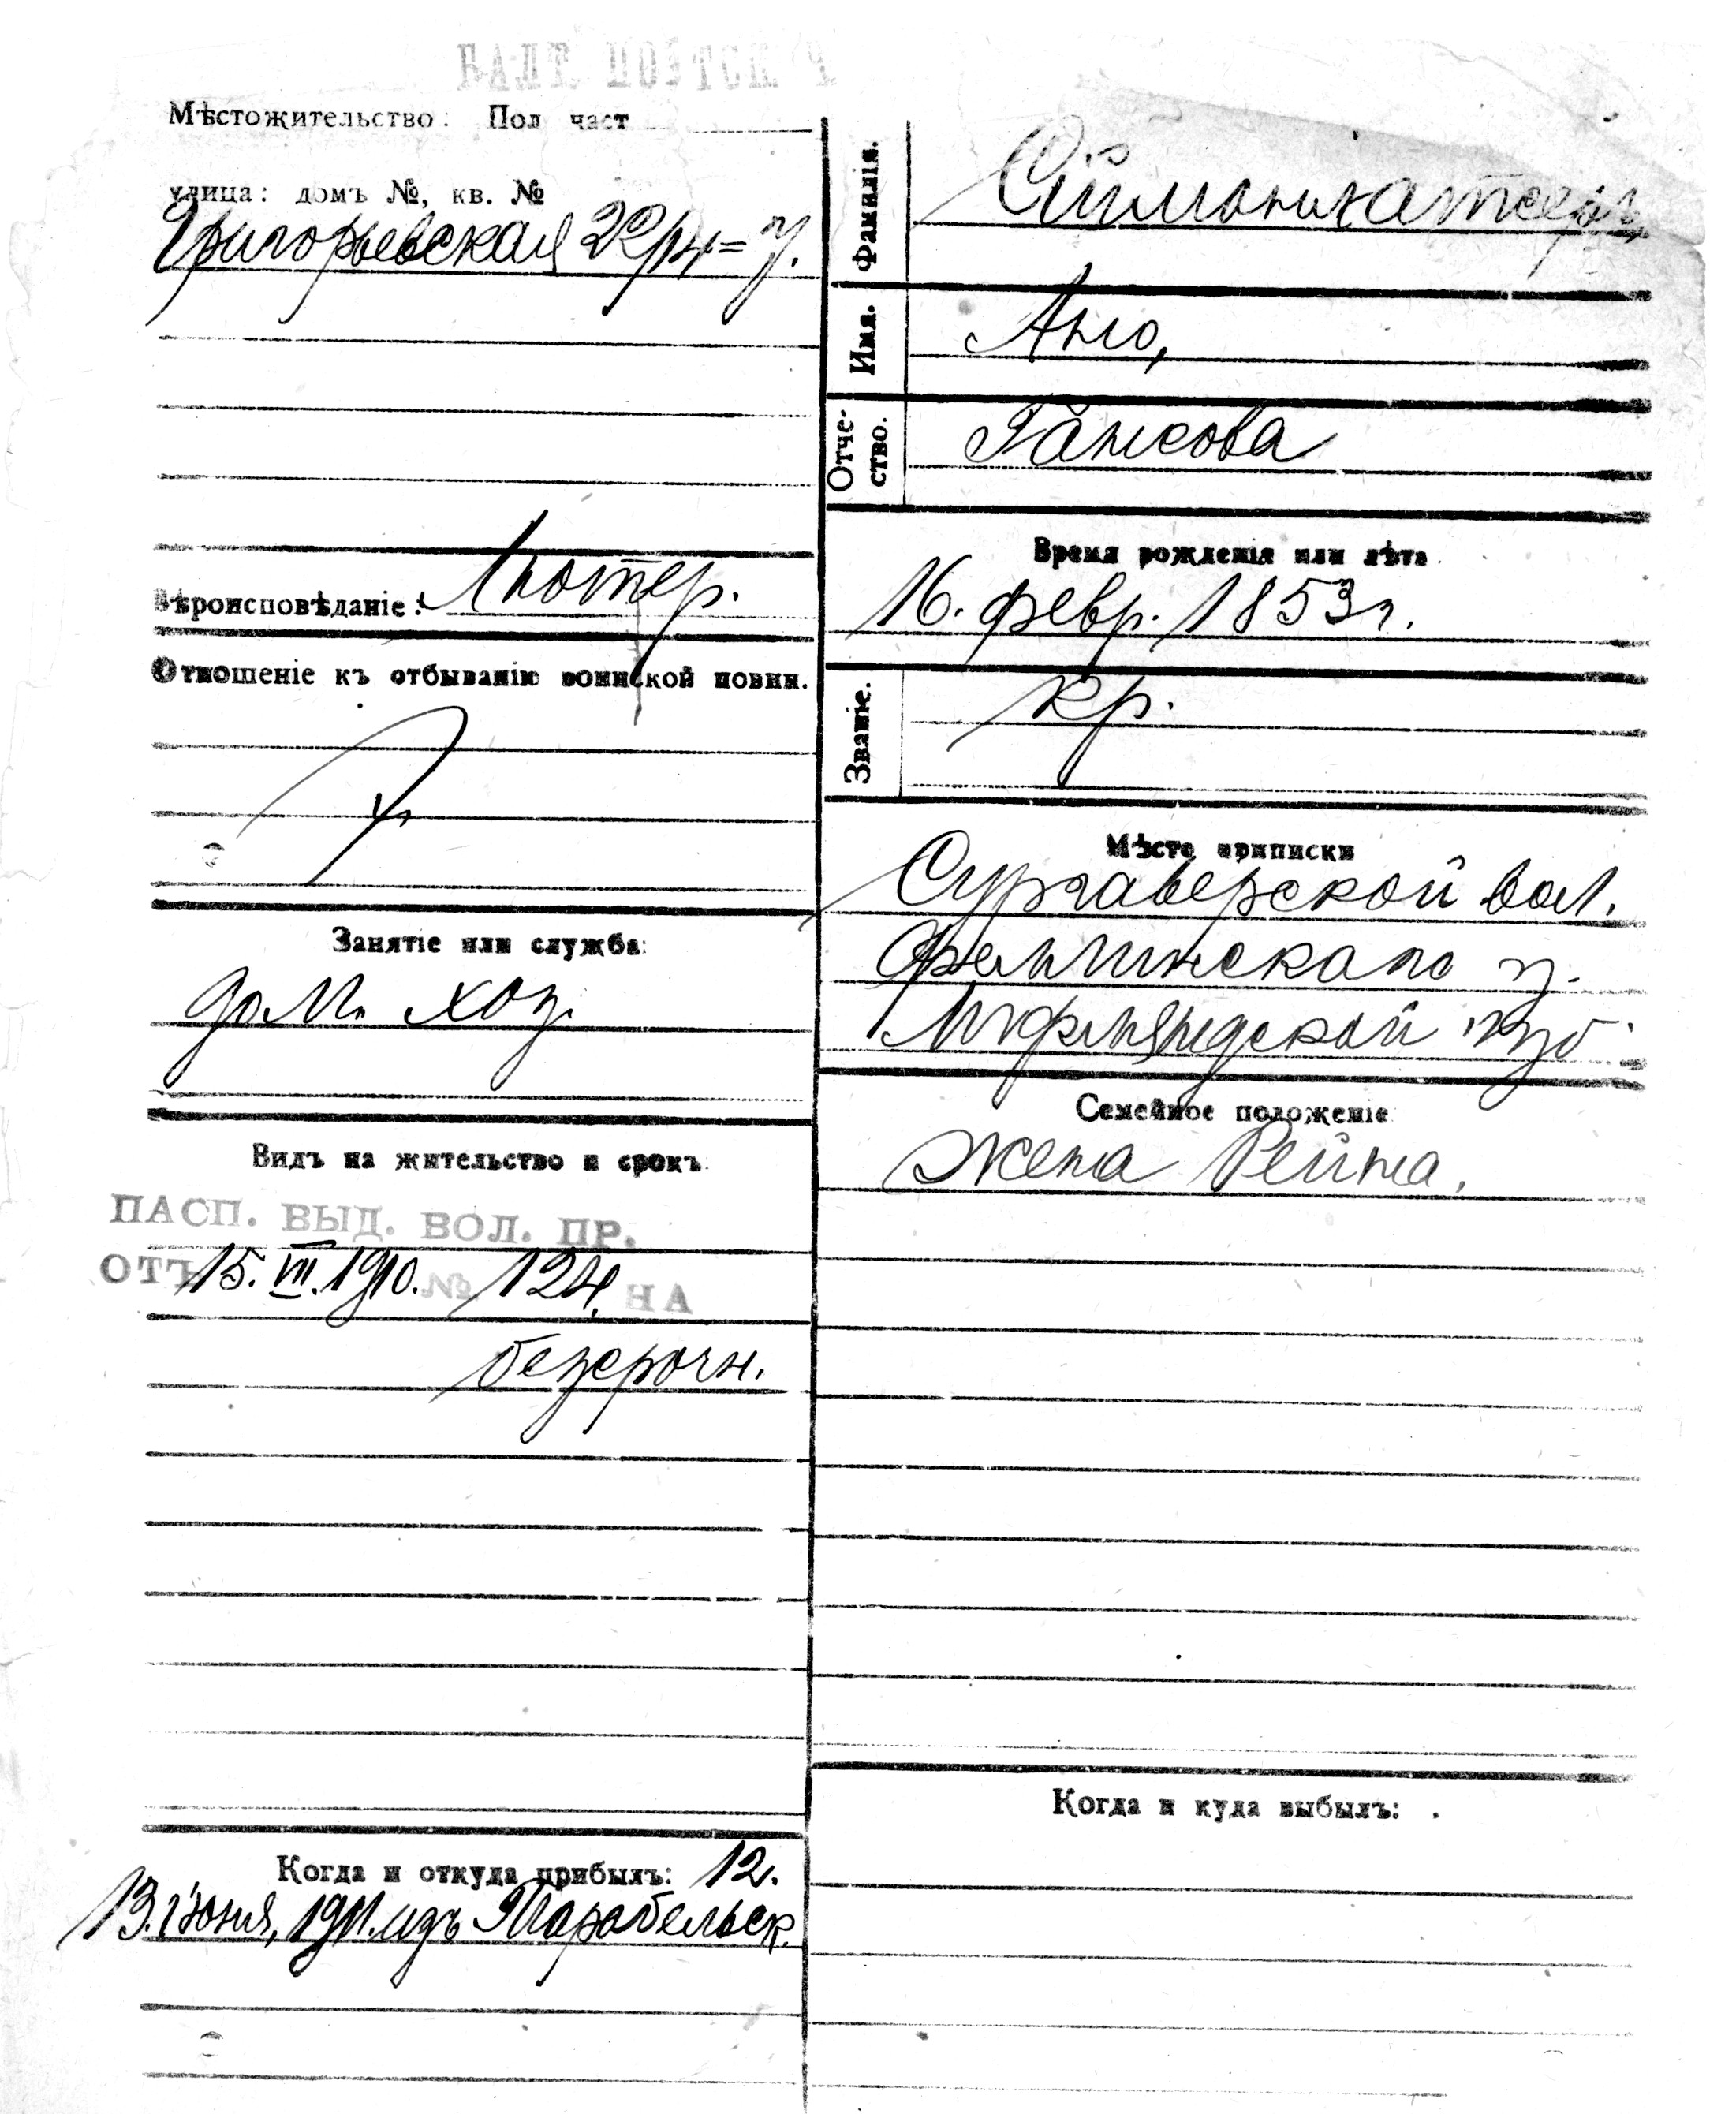 БАЛТ. ПОРТСК. Ч
Мѣстожительство: Пол част
улица: домъ №, кв. №
Григорьевская 22/14=7.
Вѣроисповѣданіе: Лютер.
Отношеніе къ отбыванію воинской повин.
Занятіе или служба:
дом. хоз.
Видъ на жительство и срокъ
ПАСП. ВЫД. ВОЛ. ПР.
ОТЪ 15. VII. 1910. № 124. НА
безсрочн.
Когда и откуда прибылъ: 12.
13. іюня, 1911. изъ
Фамилія.
Имя. Аню,
Отчество. Гансова
Время рожденія или лѣта
16. февр. 1853 г.
Званіе. кр.
Мѣсто приписки
Сургаверской вол.
Феллинскаго у.
Лифляндской губ.
Семейное положеніе
Жена Рейна.
Когда и куда выбылъ: